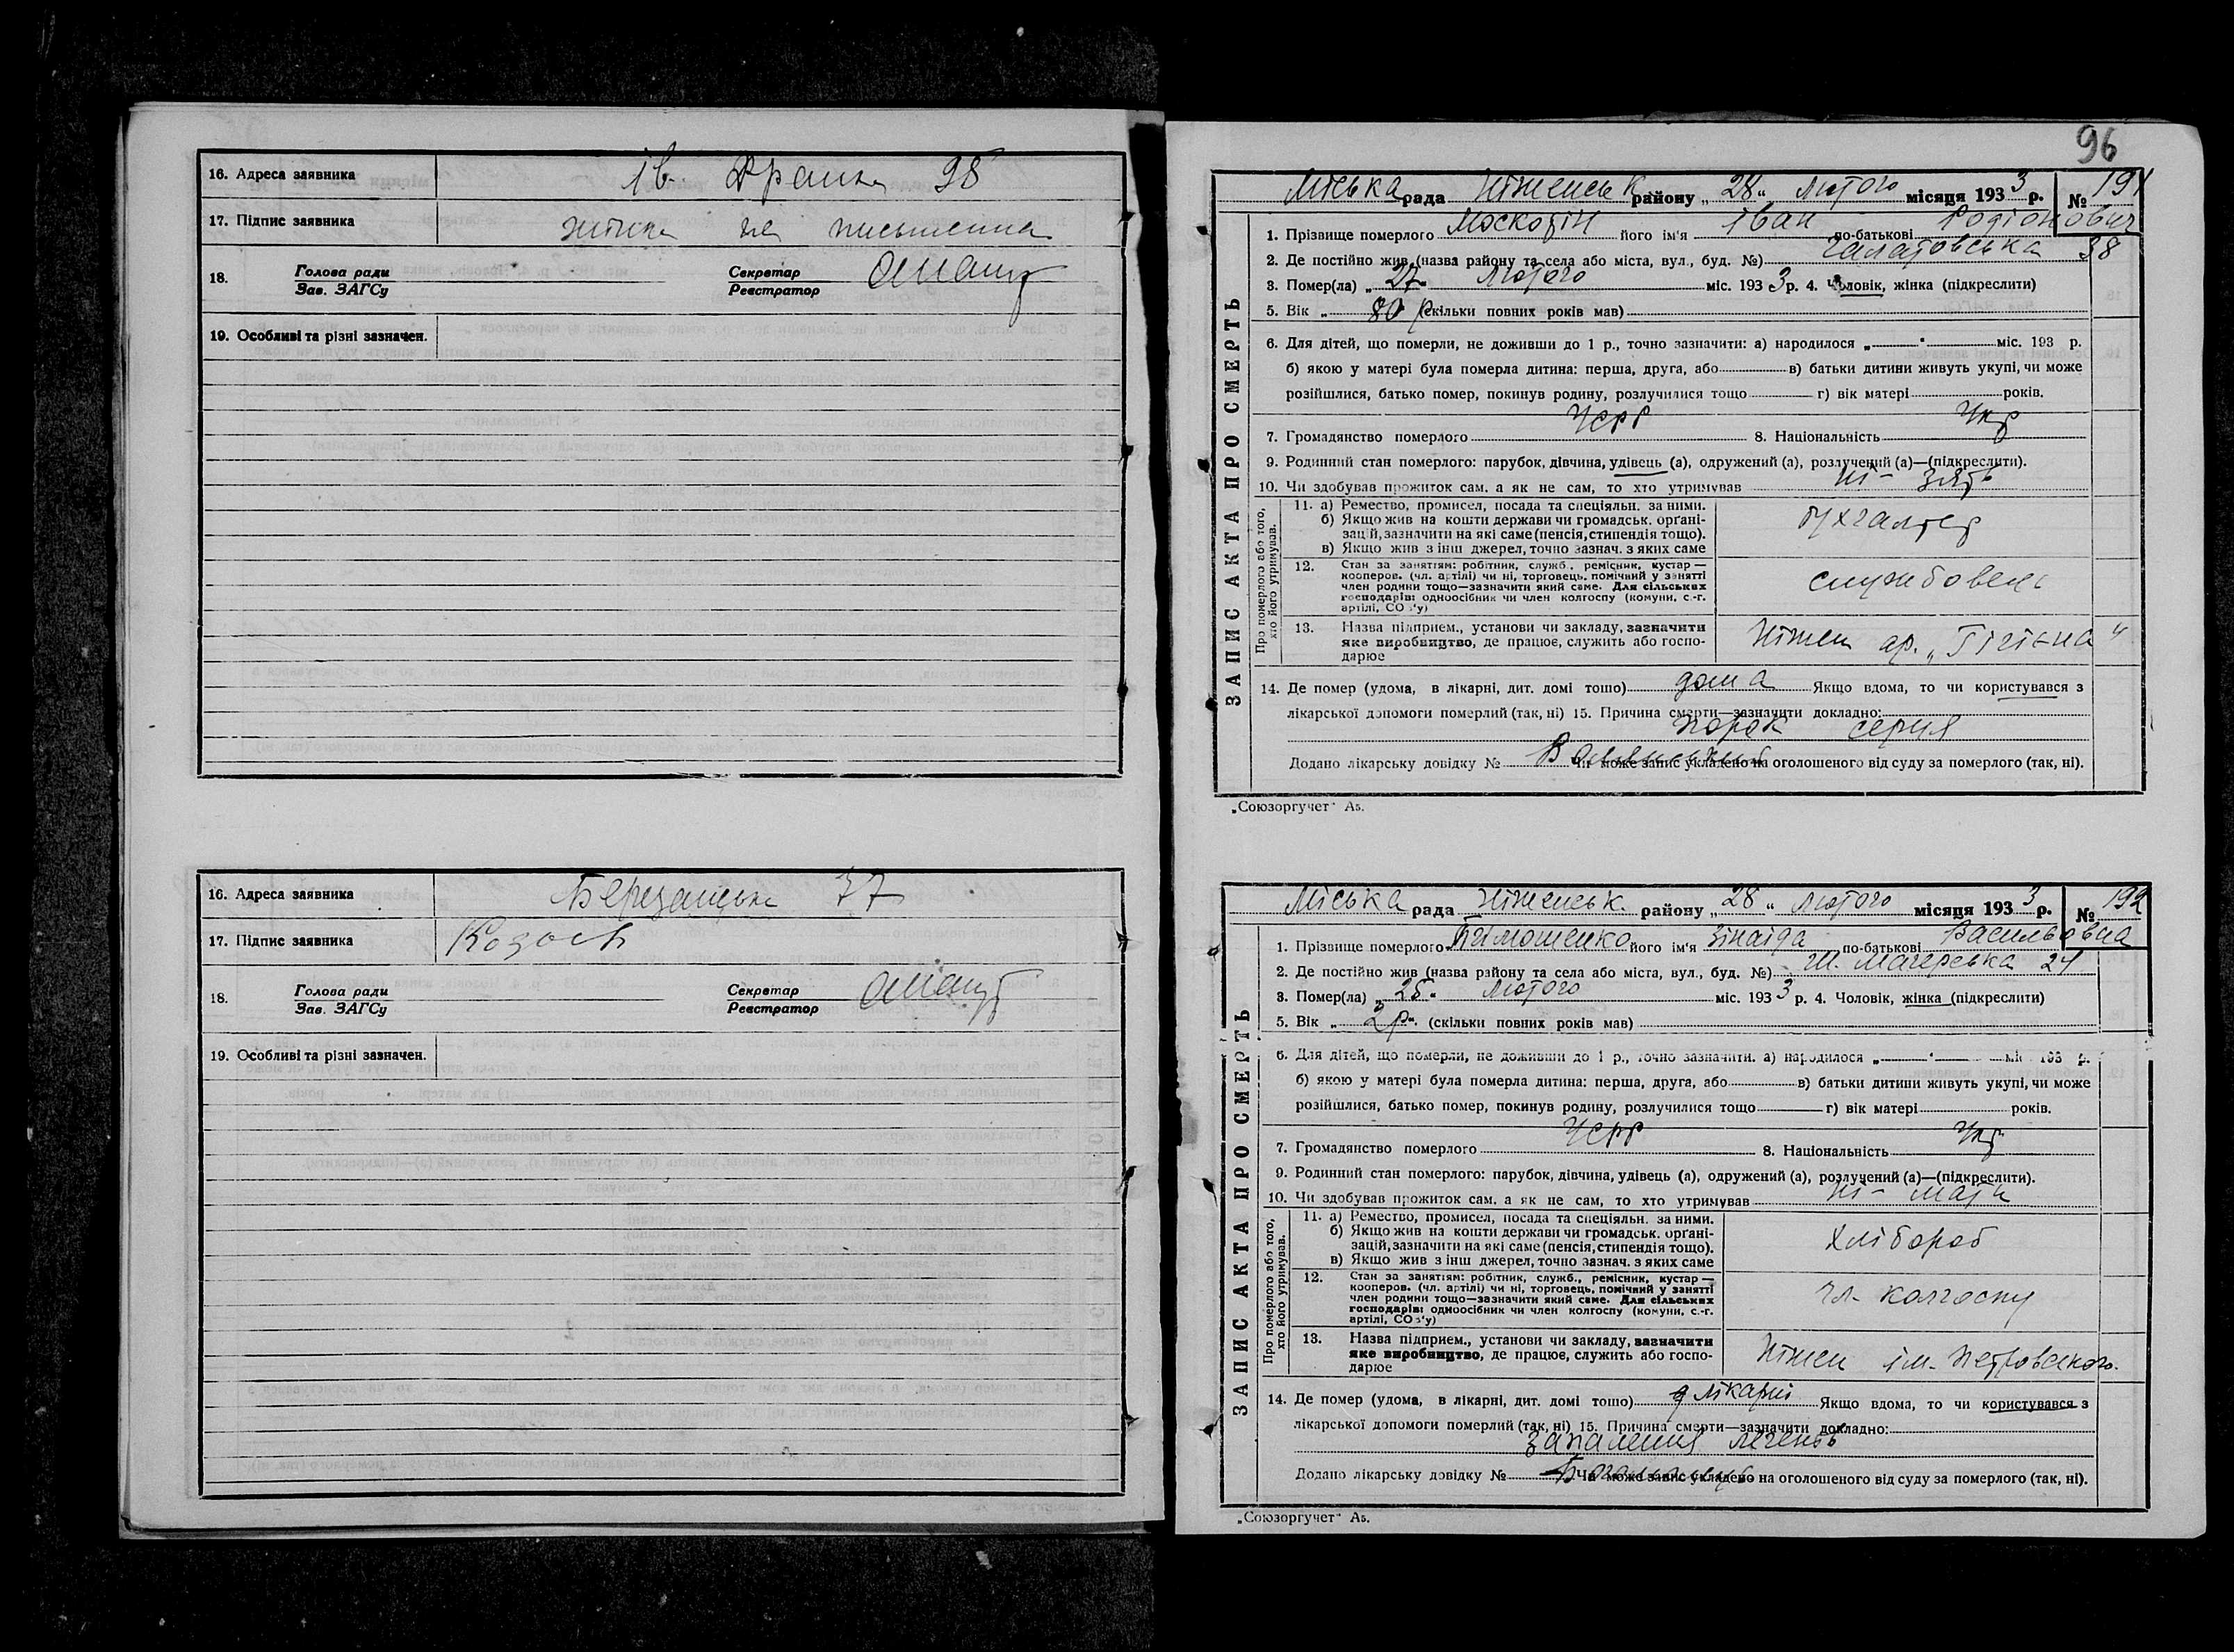 16. Адреса заявника Ів. Франка 98
17. Підпис заявника жінка не письменна
18. Голова ради
Зав. ЗАГСу
Секретар
Реєстратор
19. Особливі та різні зазначен.
16. Адреса заявника 37
17. Підпис заявника
18. Голова ради
Зав. ЗАГСу
Секретар
Реєстратор
19. Особливі та різні зазначен.
96
Міська рада Ніженськ району „28" лютого місяця 1933 р. № 191
ЗАПИС АКТА ПРО СМЕРТЬ
1. Прізвище померлого його ім'я Іван по-батькові Родіонович
2. Де постійно жив (назва району та села або міста, вул., буд. №) 38
3. Помер(ла) „27" лютого міс. 1933 р. 4. Чоловік, жінка (підкреслити)
5. Вік „ 80 р (скільки повних років мав)
6. Для дітей, що померли, не доживши до 1 р., точно зазначити: а) народилося „ " міс. 193 р.
б) якою у матері була померла дитина: перша, друга, або в) батьки дитини живуть укупі, чи може
розійшлися, батько помер, покинув родину, розлучилися тощо г) вік матері років.
7. Громадянство померлого УСРР 8. Національність Укр
9. Родинний стан померлого: парубок, дівчина, удівець (а), одружений (а), розлучений (а)—(підкреслити).
10. Чи здобував прожиток сам, а як не сам, то хто утримував ні – зять
Про померлого або того,
хто його утримував.
11. а) Ремество, промисел, посада та спеціяльн. за ними.
б) Якщо жив на кошти держави чи громадськ. орґані-
зацій, зазначити на які саме (пенсія, стипендія тощо).
в) Якщо жив з інш джерел, точно зазнач. з яких саме
бухгалтер
12. Стан за занятіям: робітник, служб., ремісник, кустар—
кооперов. (чл. артілі) чи ні, торговець, помічний у занятті
член родини тощо—зазначити який саме. Для сільських
господарів: одноосібник чи член колгоспу (комуни, с.-г.
артілі, СОЗ'у)
службовець
13. Назва підприєм., установи чи закладу, зазначити
яке виробництво, де працює, служить або госпо-
дарює
Ніжен ар. „Гігієна"
14. Де помер (удома, в лікарні, дит. домі тощо) дома Якщо вдома, то чи користувався з
лікарської допомоги померлий (так, ні) 15. Причина смерти—зазначити докладно:
порок серця
Додано лікарську довідку № Чи може запис укладено на оголошеного від суду за померлого (так, ні).
„Союзоргучет" А5.
Міська рада Ніженськ. району „28" лютого місяця 1933 р. № 192
ЗАПИС АКТА ПРО СМЕРТЬ
1. Прізвище померлого його ім'я Зінаїда по-батькові Васильовна
2. Де постійно жив (назва району та села або міста, вул., буд. №) Ш. Магерська 24
3. Помер(ла) „25" лютого міс. 1933 р. 4. Чоловік, жінка (підкреслити)
5. Вік „ 2 р " (скільки повних років мав)
6. Для дітей, що померли, не доживши до 1 р., точно зазначити. а) народилося „ " міс 193 р.
б) якою у матері була померла дитина: перша, друга, або в) батьки дитини живуть укупі, чи може
розійшлися, батько помер, покинув родину, розлучилися тощо г) вік матері років.
7. Громадянство померлого УСРР 8. Національність Укр
9. Родинний стан померлого: парубок, дівчина, удівець (а), одружений (а), розлучений (а)—(підкреслити).
10. Чи здобував прожиток сам, а як не сам, то хто утримував ні – мати
Про померлого або того,
хто його утримував.
11. а) Ремество, промисел, посада та спеціяльн. за ними.
б) Якщо жив на кошти держави чи громадськ. орґані-
зацій, зазначити на які саме (пенсія, стипендія тощо).
в) Якщо жив з інш джерел, точно зазнач. з яких саме
хлібороб
12. Стан за занятіям: робітник, служб., ремісник, кустар—
кооперов. (чл. артілі) чи ні, торговець, помічний у занятті
член родини тощо—зазначити який саме. Для сільських
господарів: одноосібник чи член колгоспу (комуни, с.-г.
артілі, СОЗ'у)
чл. колгоспу
13. Назва підприєм., установи чи закладу, зазначити
яке виробництво, де працює, служить або госпо-
дарює
Ніжен ім. Петровського.
14. Де помер (удома, в лікарні, дит. домі тощо) у лікарні Якщо вдома, то чи користувався з
лікарської допомоги померлий (так, ні) 15. Причина смерти—зазначити докладно:
запалення легень
Додано лікарську довідку № Чи може запис укладено на оголошеного від суду за померлого (так, ні).
„Союзоргучет" А5.